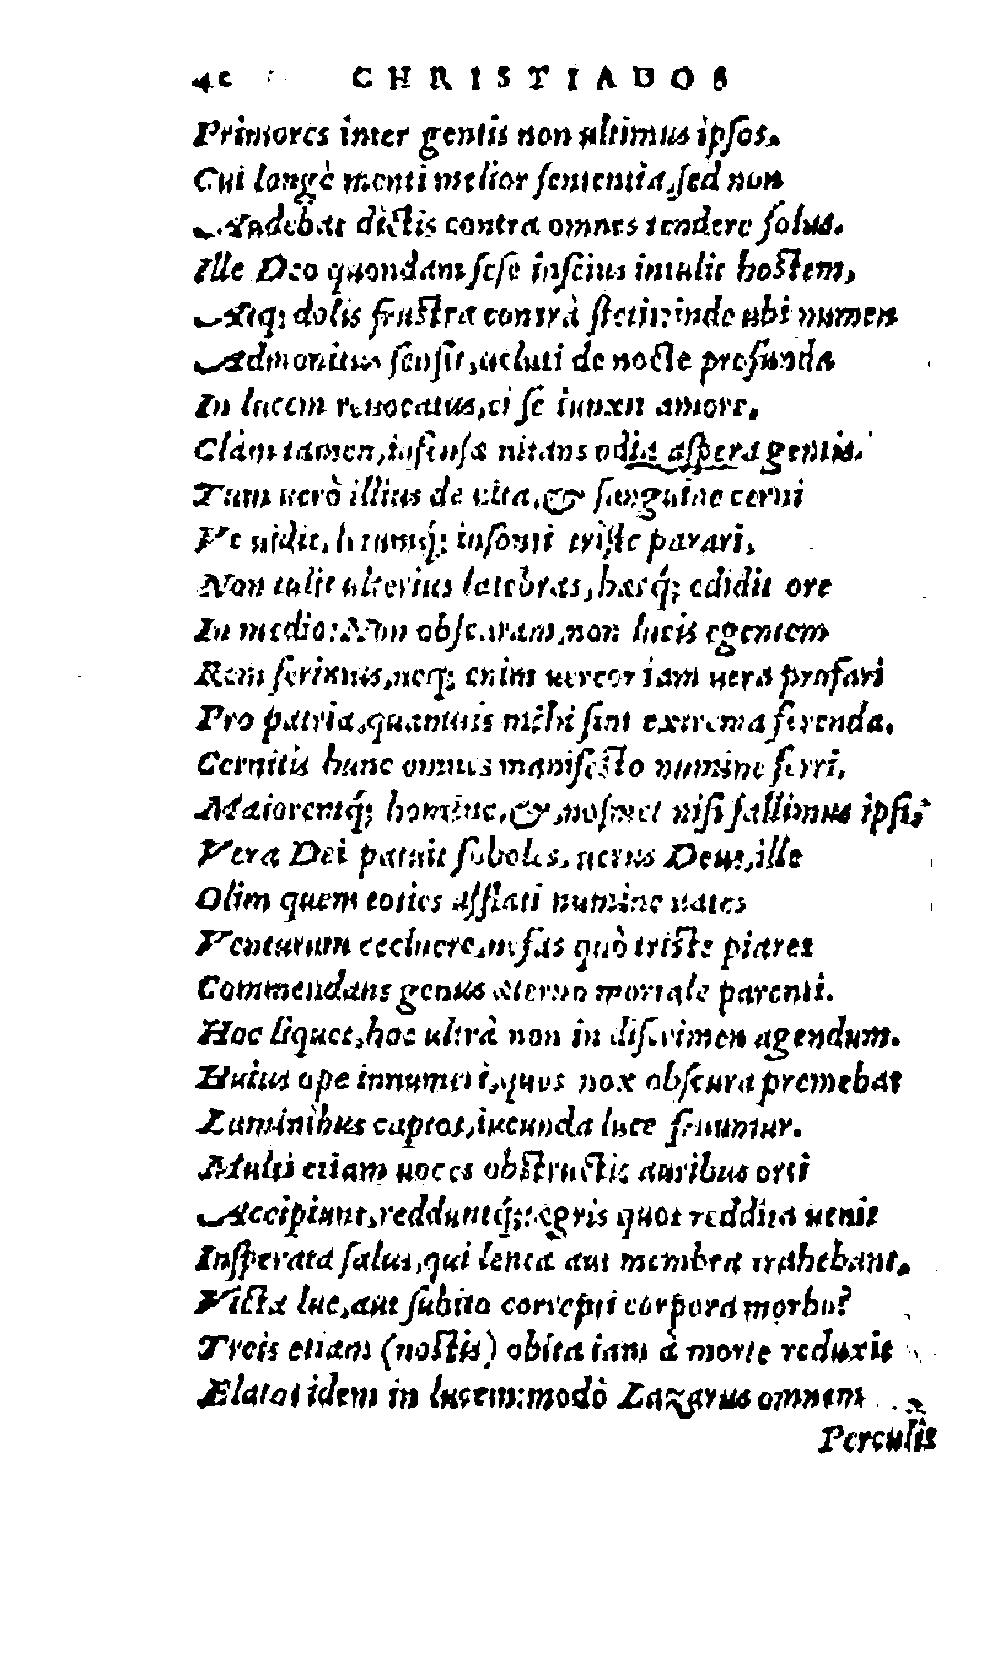 40 CHRISTIADOS
Primores inter gentis non ultimus ipsos.
Cui longè menti melior sententia, sed non
Audebat dictis contra omnes tendere solus.
Ille Deo quondam sese inscius intulit hostem,
Atq; dolis frustra contrà stetit: inde ubi numen
Admonitus sensit, ueluti de nocte profunda
In lucem reuocatus, ei se iunxit amore.
Clàm tamen, infensæ uitans odia aspera gentis.
Tum uerò illius de uita, & sanguine cerni
Vt uidit, letumq́; insonti triste parari,
Non tulit ulterius latebras, hæcq́; edidit ore
In medio: Non obscuram, non lucis egentem
Rem serimus, neq; enim uereor iam uera profari
Pro patria, quamuis mihi sint extrema ferenda.
Cernitis hunc omnes manifesto numine ferri,
Maioremq́; homine, & nosmet nisi fallimus ipsi,
Vera Dei patuit soboles, uerus Deus, ille
Olim quem toties afflati numine uates
Venturum cecinere, nefas quò triste piaret
Commendans genus æterno mortale parenti.
Hoc liquet, hoc ultrà non in discrimen agendum.
Huius ope innumeri, quos nox obscura premebat
Luminibus captos, iucunda luce fruuntur.
Multi etiam uoces obstructis auribus orti
Accipiunt, redduntq́;: ægris quot reddita uenit
Insperata salus, qui lenta aut membra trahebant,
Victa lue, aut subito correpti corpora morbo?
Treis etiam (nostis) obita iam à morte reduxit
Elatos idem in lucem: modò Lazarus omnem
Perculit